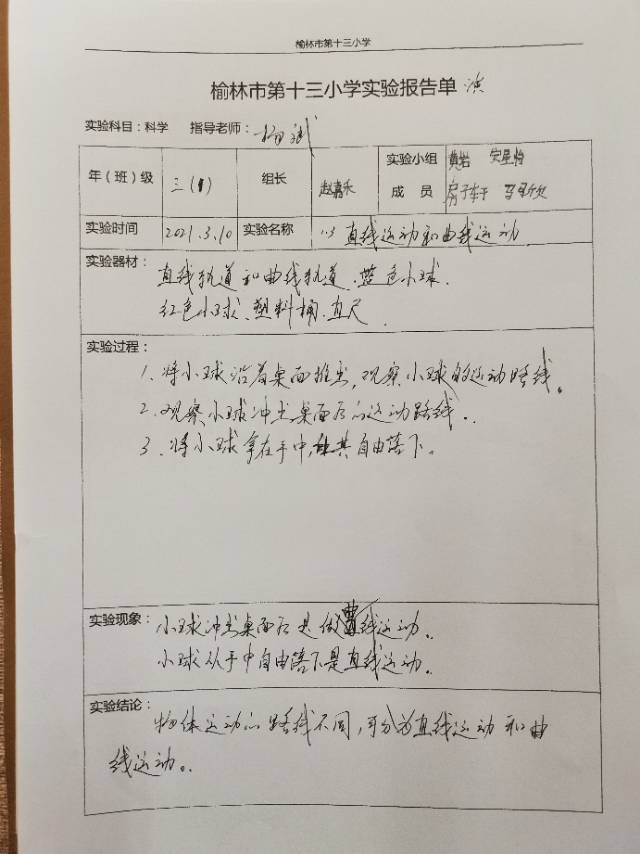 榆林市第十三小学
榆林市第十三小学实验报告单 演
实验科目：科学 指导老师：
年（班）级 三(1) 组长 实验小组成员
实验时间 2021.3.10 实验名称 1.3 直线运动和曲线运动
实验器材：
直线轨道和曲线轨道、蓝色小球、
红色小球、塑料桶、直尺
实验过程：
1、将小球沿着桌面推出，观察小球的运动路线。
2、观察小球冲出桌面后的运动路线。
3、将小球拿在手中，让其自由落下。
实验现象：
小球冲出桌面后是做曲线运动。
小球从手中自由落下是直线运动。
实验结论：
物体运动的路线不同，可分为直线运动和曲
线运动。